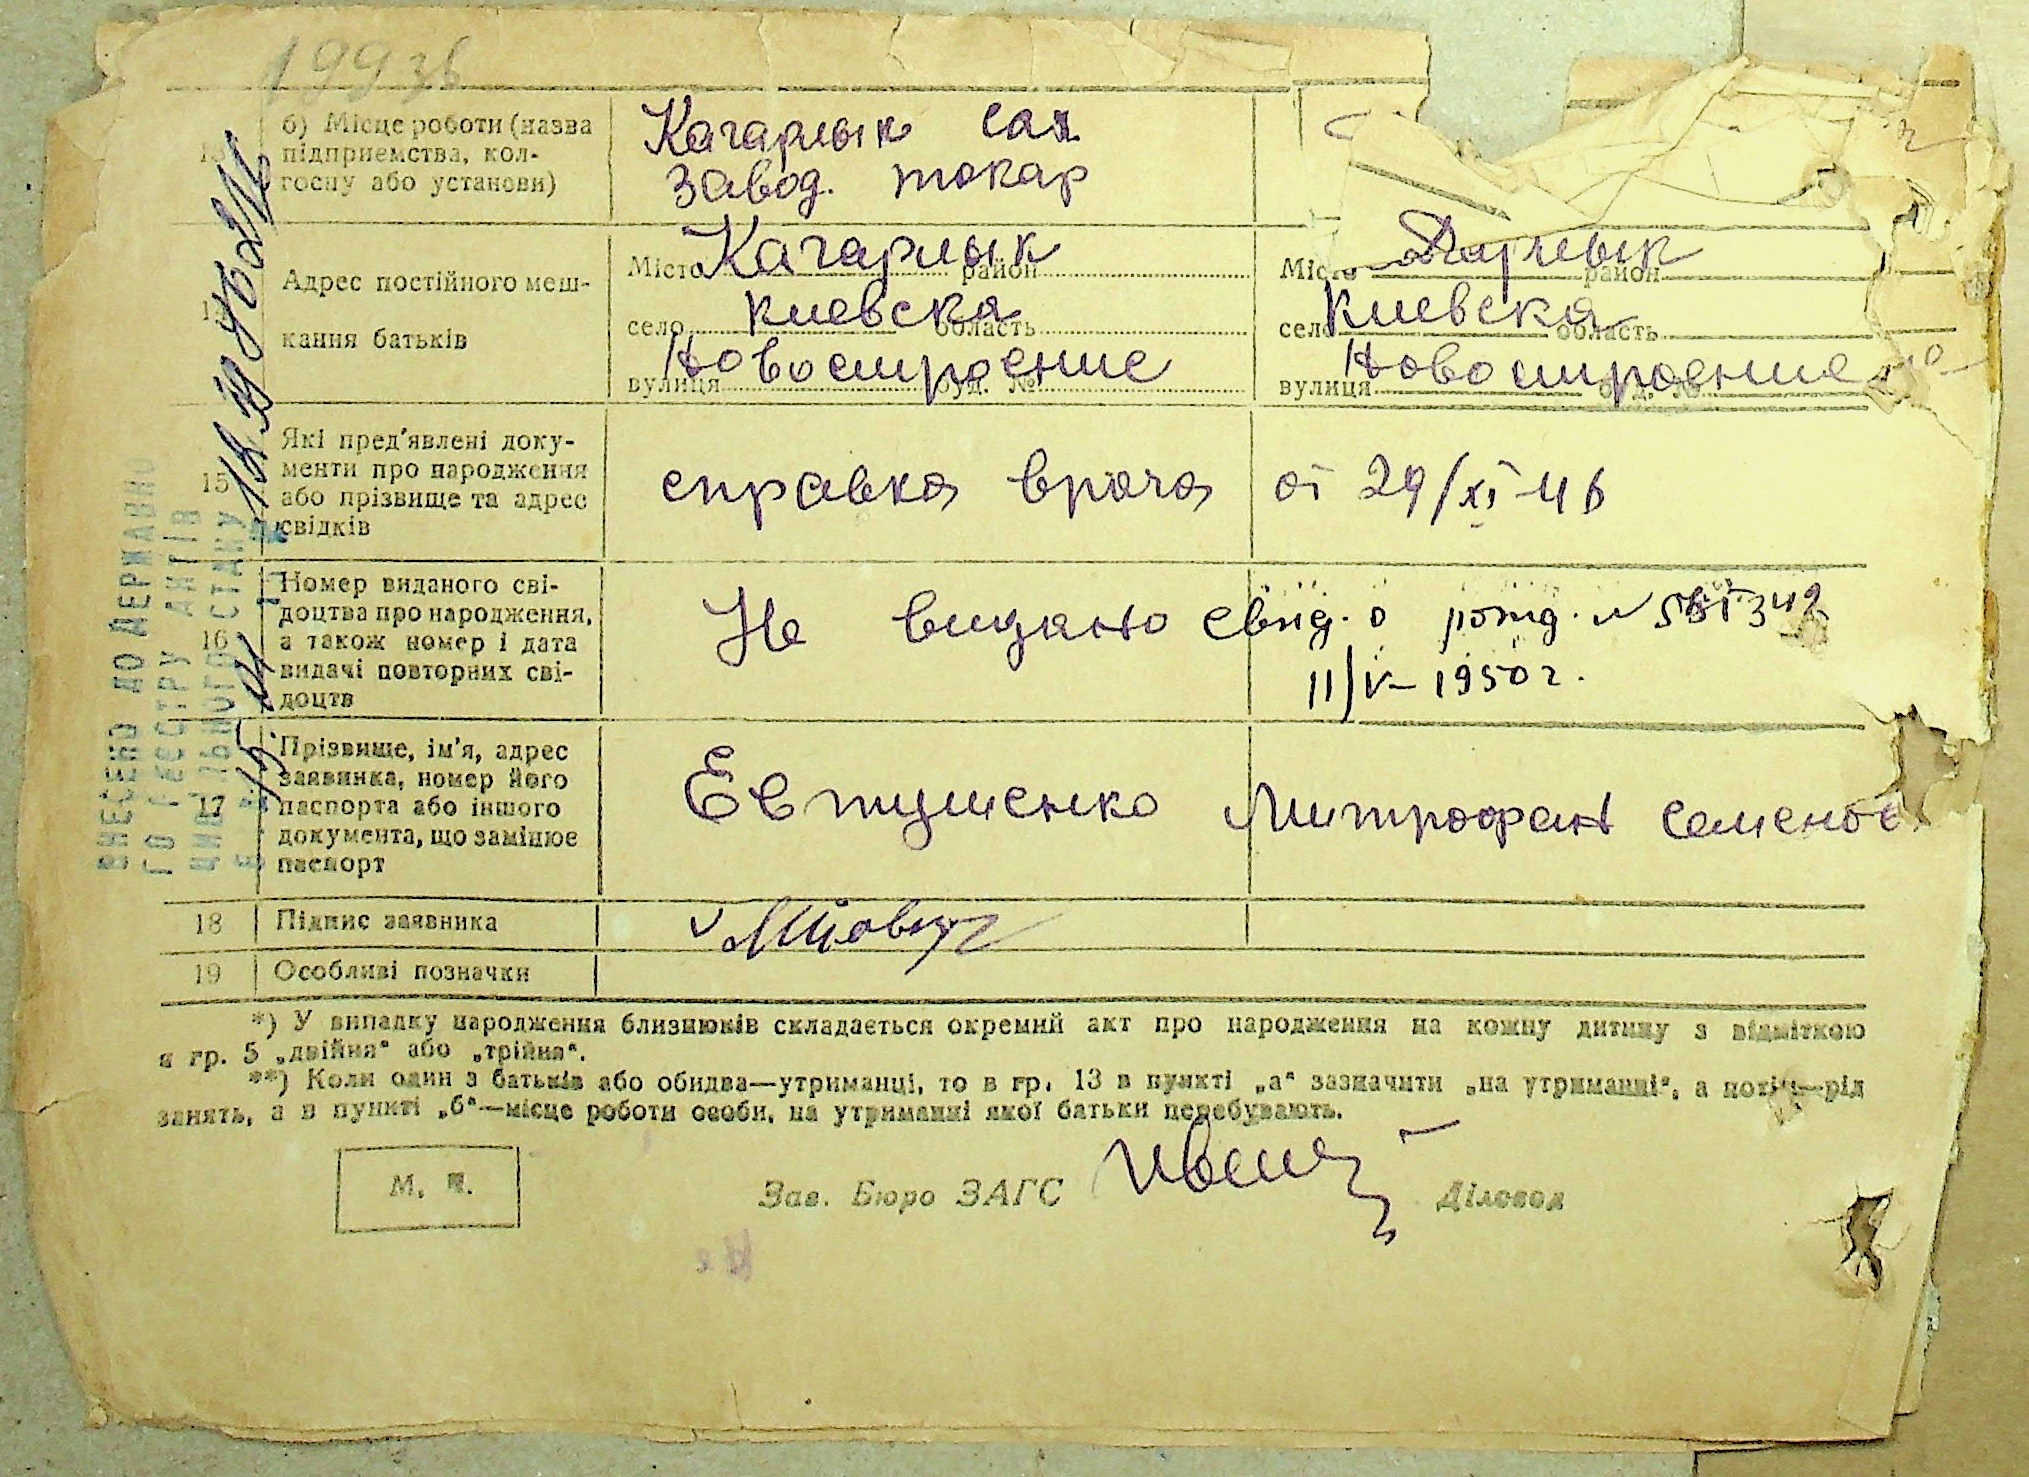 б) Місце роботи (назва
підприемства, кол-
госпу або установи)
Кагарлык сах
завод. токар
Адрес постійного меш-
кання батьків
Місто Кагарлык район
село Киевска область
вулиця Новостроение буд. №
Місто район
село Киевска область
вулиця Новостроение буд. №
15
Які пред'явлені доку-
менти про народження
або прізвище та адрес
свідків
справка врача от 29/XI-46
16
Номер виданого сві-
доцтва про народження,
а також номер і дата
видачі повторних сві-
доцтв
Не видано свид. о рожд. №
11/V-1950г.
17
Прізвище, ім'я, адрес
заявника, номер його
паспорта або іншого
документа, що замінює
паспорт
Евтушенко Митрофан Семенов
18 Підпис заявника
19 Особливі позначки
*) У випадку народження близнюків складається окремий акт про народження на кожну дитину з відміткою
в гр. 5 „двійня" або „трійня".
**) Коли один з батьків або обидва—утриманці, то в гр. 13 в пункті „а" зазначити „на утриманні", а потім—рід
занять, а в пункті „б"—місце роботи особи, на утриманні якої батьки перебувають.
М. П.
Зав. Бюро ЗАГС
Діловод
ВНЕСЕНО ДО ДЕРЖАВНО
ГО РЕЄСТРУ АКТІВ
ЦИВІЛЬНОГО СТАНУ